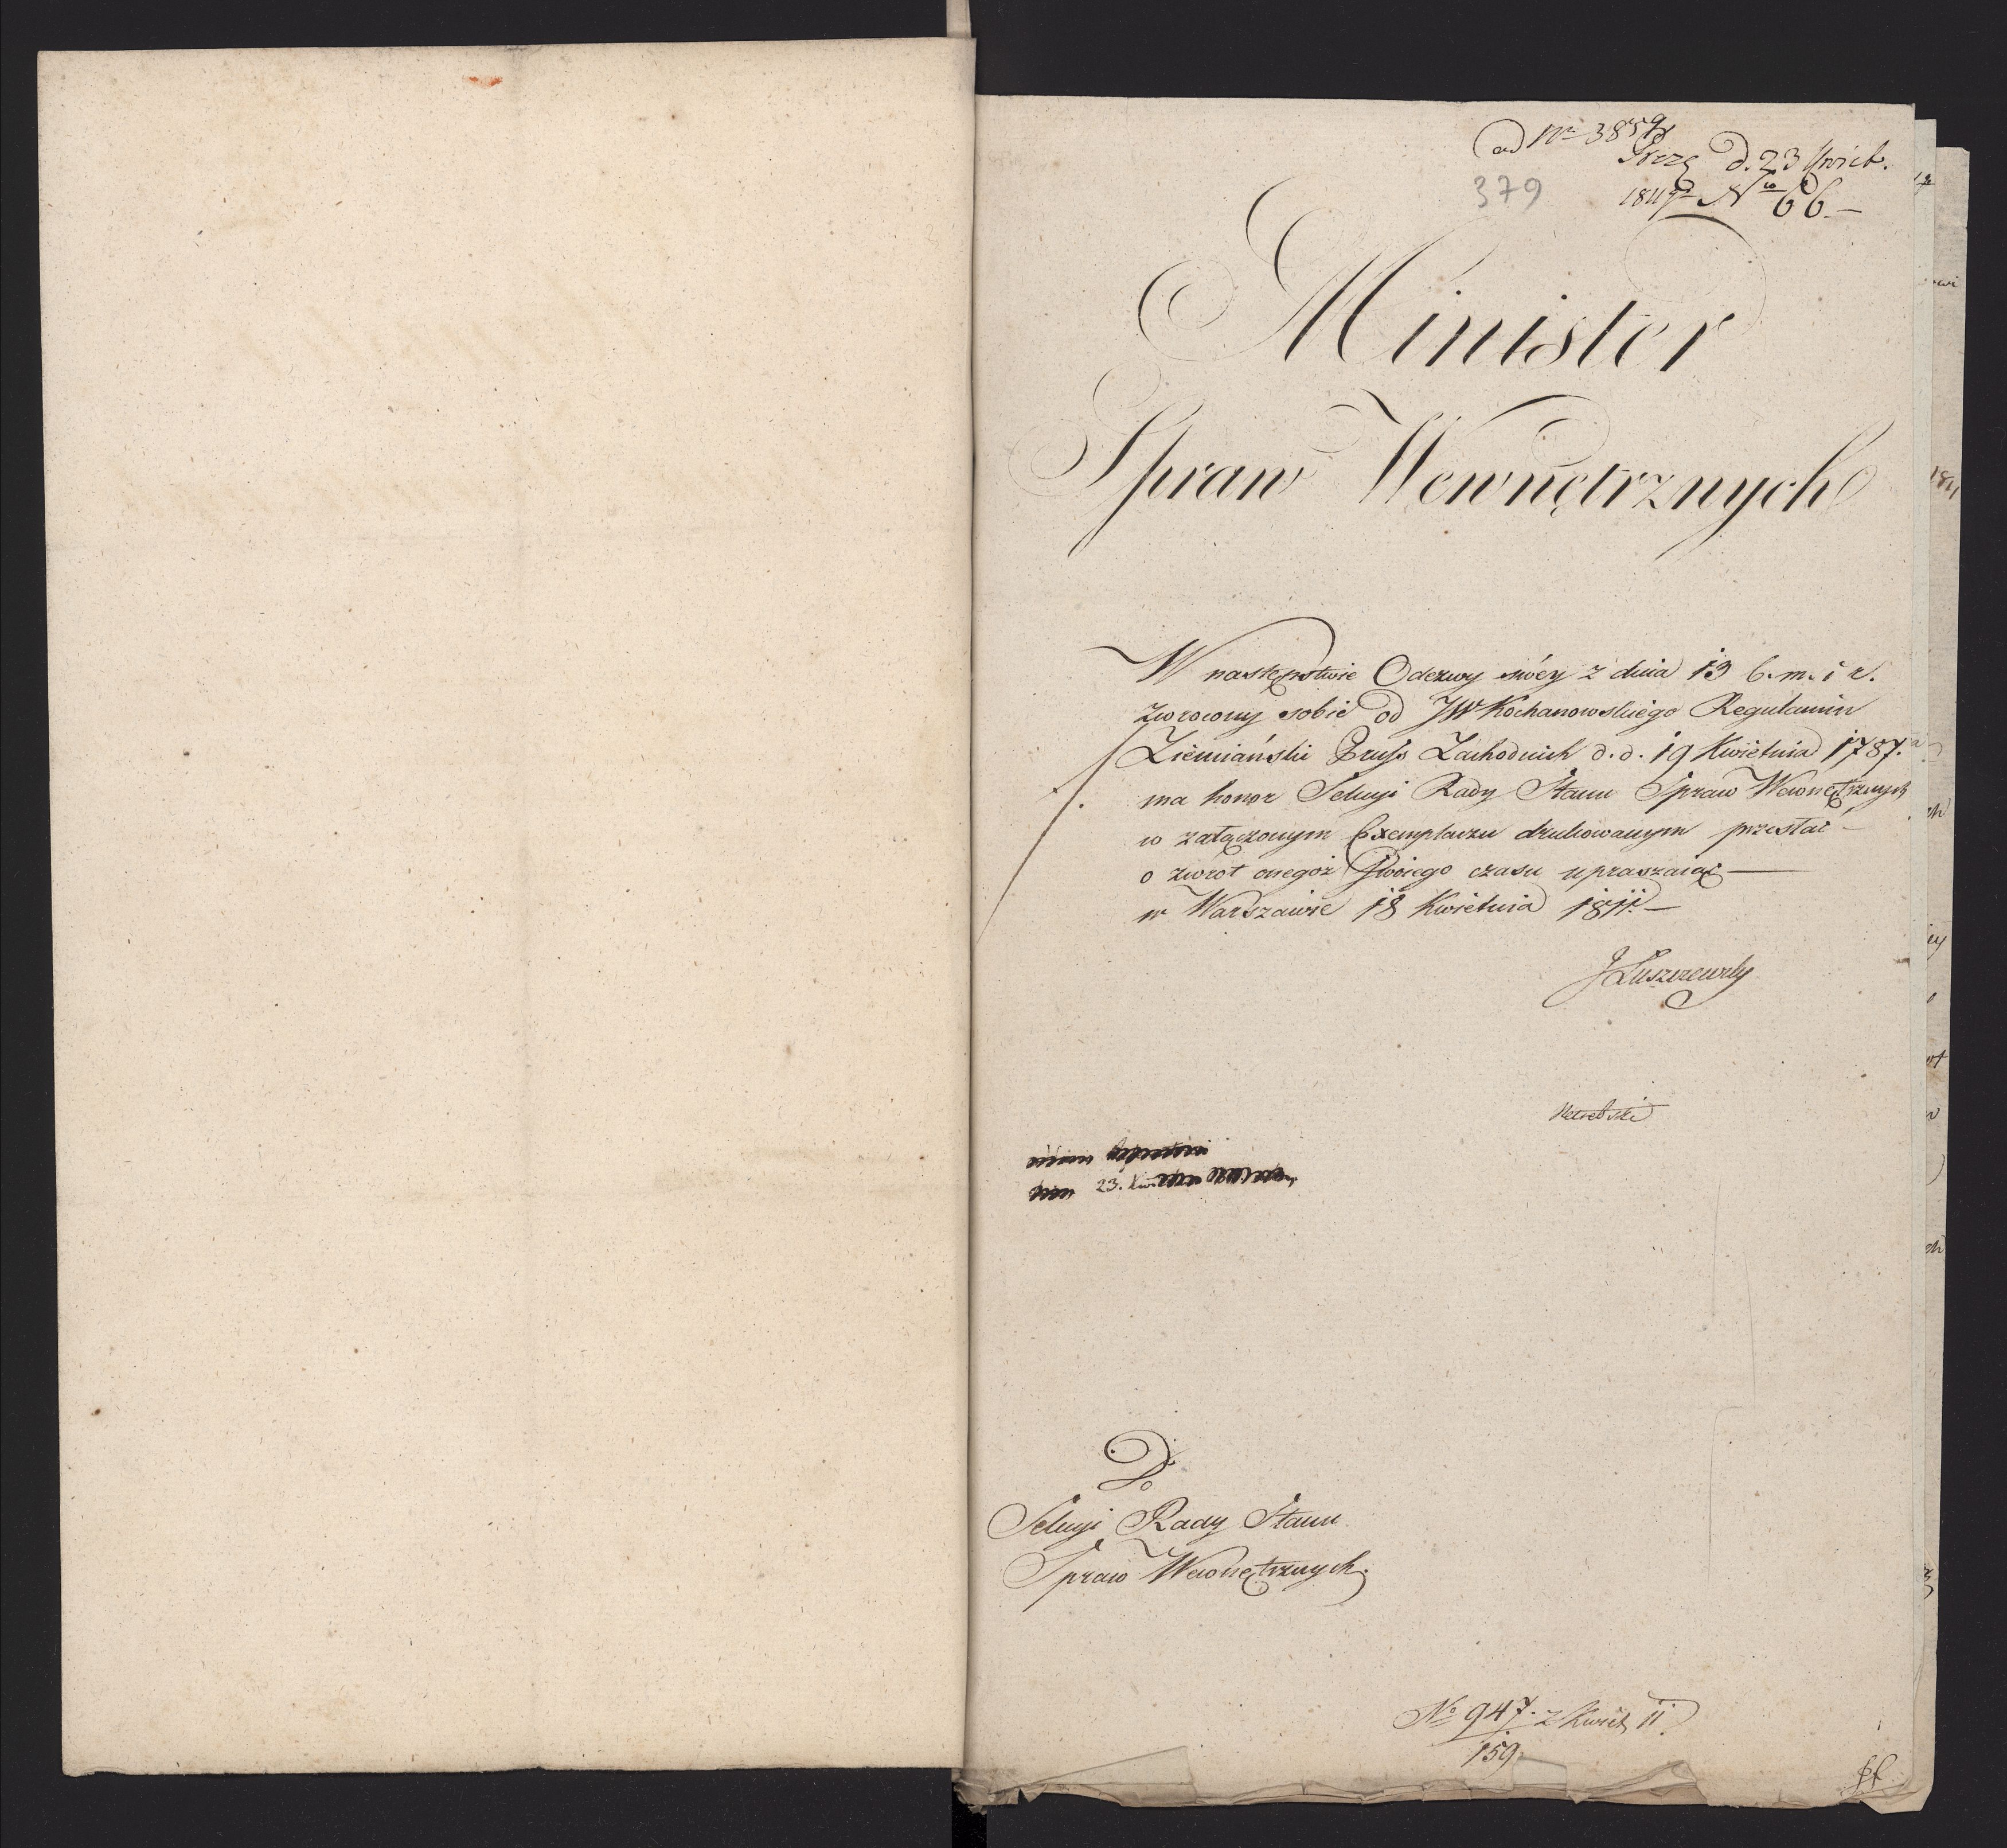 ad Nr 3859
Prez d. 23 Kwiet.
379
1811 No 66.–
Minister
Spraw Wewnętrznych
W następstwie Odezwy swéy z dnia 13 b. m. i r.
zwrocony sobie od JW Kochanowskiego Regulamin
Ziemiański Pruss Zachodnich d. d. 19 Kwietnia 1787.
ma honor Sekcyi Rady Stanu Spraw Wewnętrznych
w załączonym Exemplarzu drukowanym przesłać –
o zwrot onegoż swoiego czasu upraszaiąc —
w Warszawie 18 Kwietnia 1811. –
J Łuszczewsky
23.
Do
Sekcyi Rady Stanu
Spraw Wewnętrznych.
No 947. z Kwiet. 11.
159.